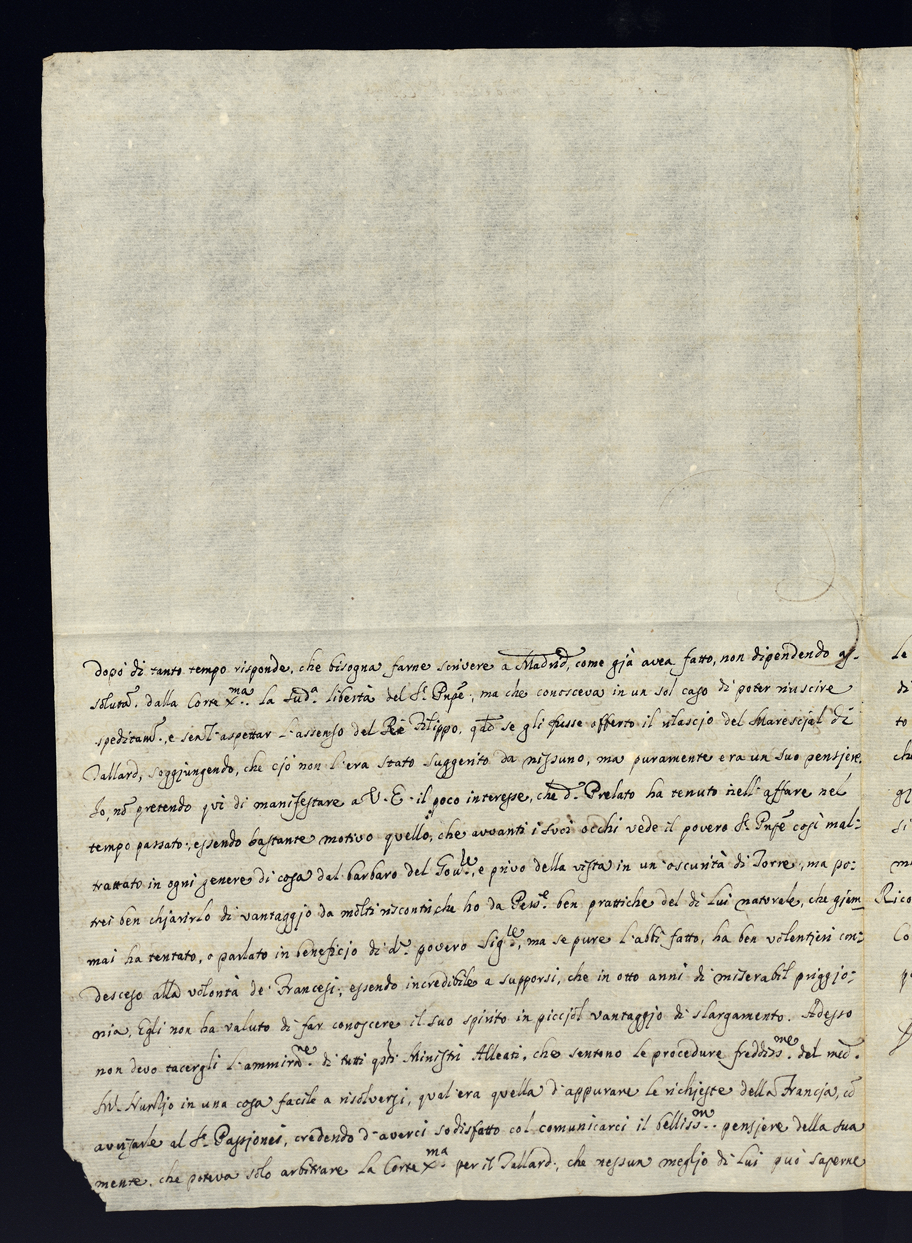 dopò di tanto tempo risponde, che bisogna farne scrivere a Madrid, come già avea fatto, non dipendendo as-
solutam.e dalla Corte X.ma la sud.a libertà del S.r Pnpe, ma che conosceva in un sol caso di poter riuscire
speditam.e, e senz'aspettar l'assenso del Rè Filippo, qdo se gli fusse offerto il rilascio del Marescial di
Tallard, soggiungendo, che ciò non l'era stato suggerito da nissuno, ma puramente era un suo pensiere.
Io, nō pretendo quì di manifestare a V. E. il poco interesse, che d.o Prelato ha tenuto nell'affare nel
tempo passato, essendo bastante motivo quello, che avvanti i suoi occhi vede il povero S.r Pnpe così mal-
trattato in ogni genere di cosa dal barbaro del Gou.le, e privo della vista in un'oscurità di Torre, ma po-
trei ben chiarirlo di vantaggio da molti riscontri che ho da Pers.e ben prattiche del di lui naturale, che giam-
mai ha tentato, o parlato in beneficio di d.o povero Sig.re, ma se pure l'abbi fatto, ha ben volentieri con-
desceso alla volontà de' Francesi, essendo incredibile a supporsi, che in otto anni di miserabil priggio-
nia, Egli non ha valuto di far conoscere il suo spirito in picciol vantaggio di slargamento. Adesso
non devo tacergli l'ammirat.ne di tutti qsti Ministri Alleati, che sentono le procedure freddiss.me del med.o
in una cosa facile a risolversi, qual'era quella d'appurare le richieste della Francia, cō
avvisarle al S.r Passionei, credendo d'averci sodisfatto col comunicarci il belliss.mo pensiere della sua
mente, che poteva solo arbitrare la Corte X.ma per il Tallard, che nessun meglio di lui può saperne